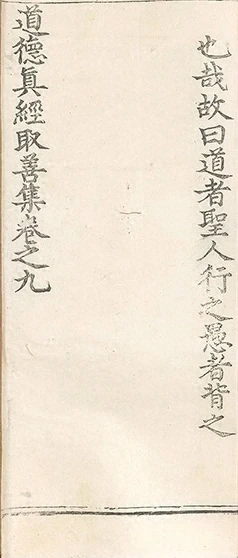 也哉故曰道者聖人行之愚者背之
道德真經取善集卷之九